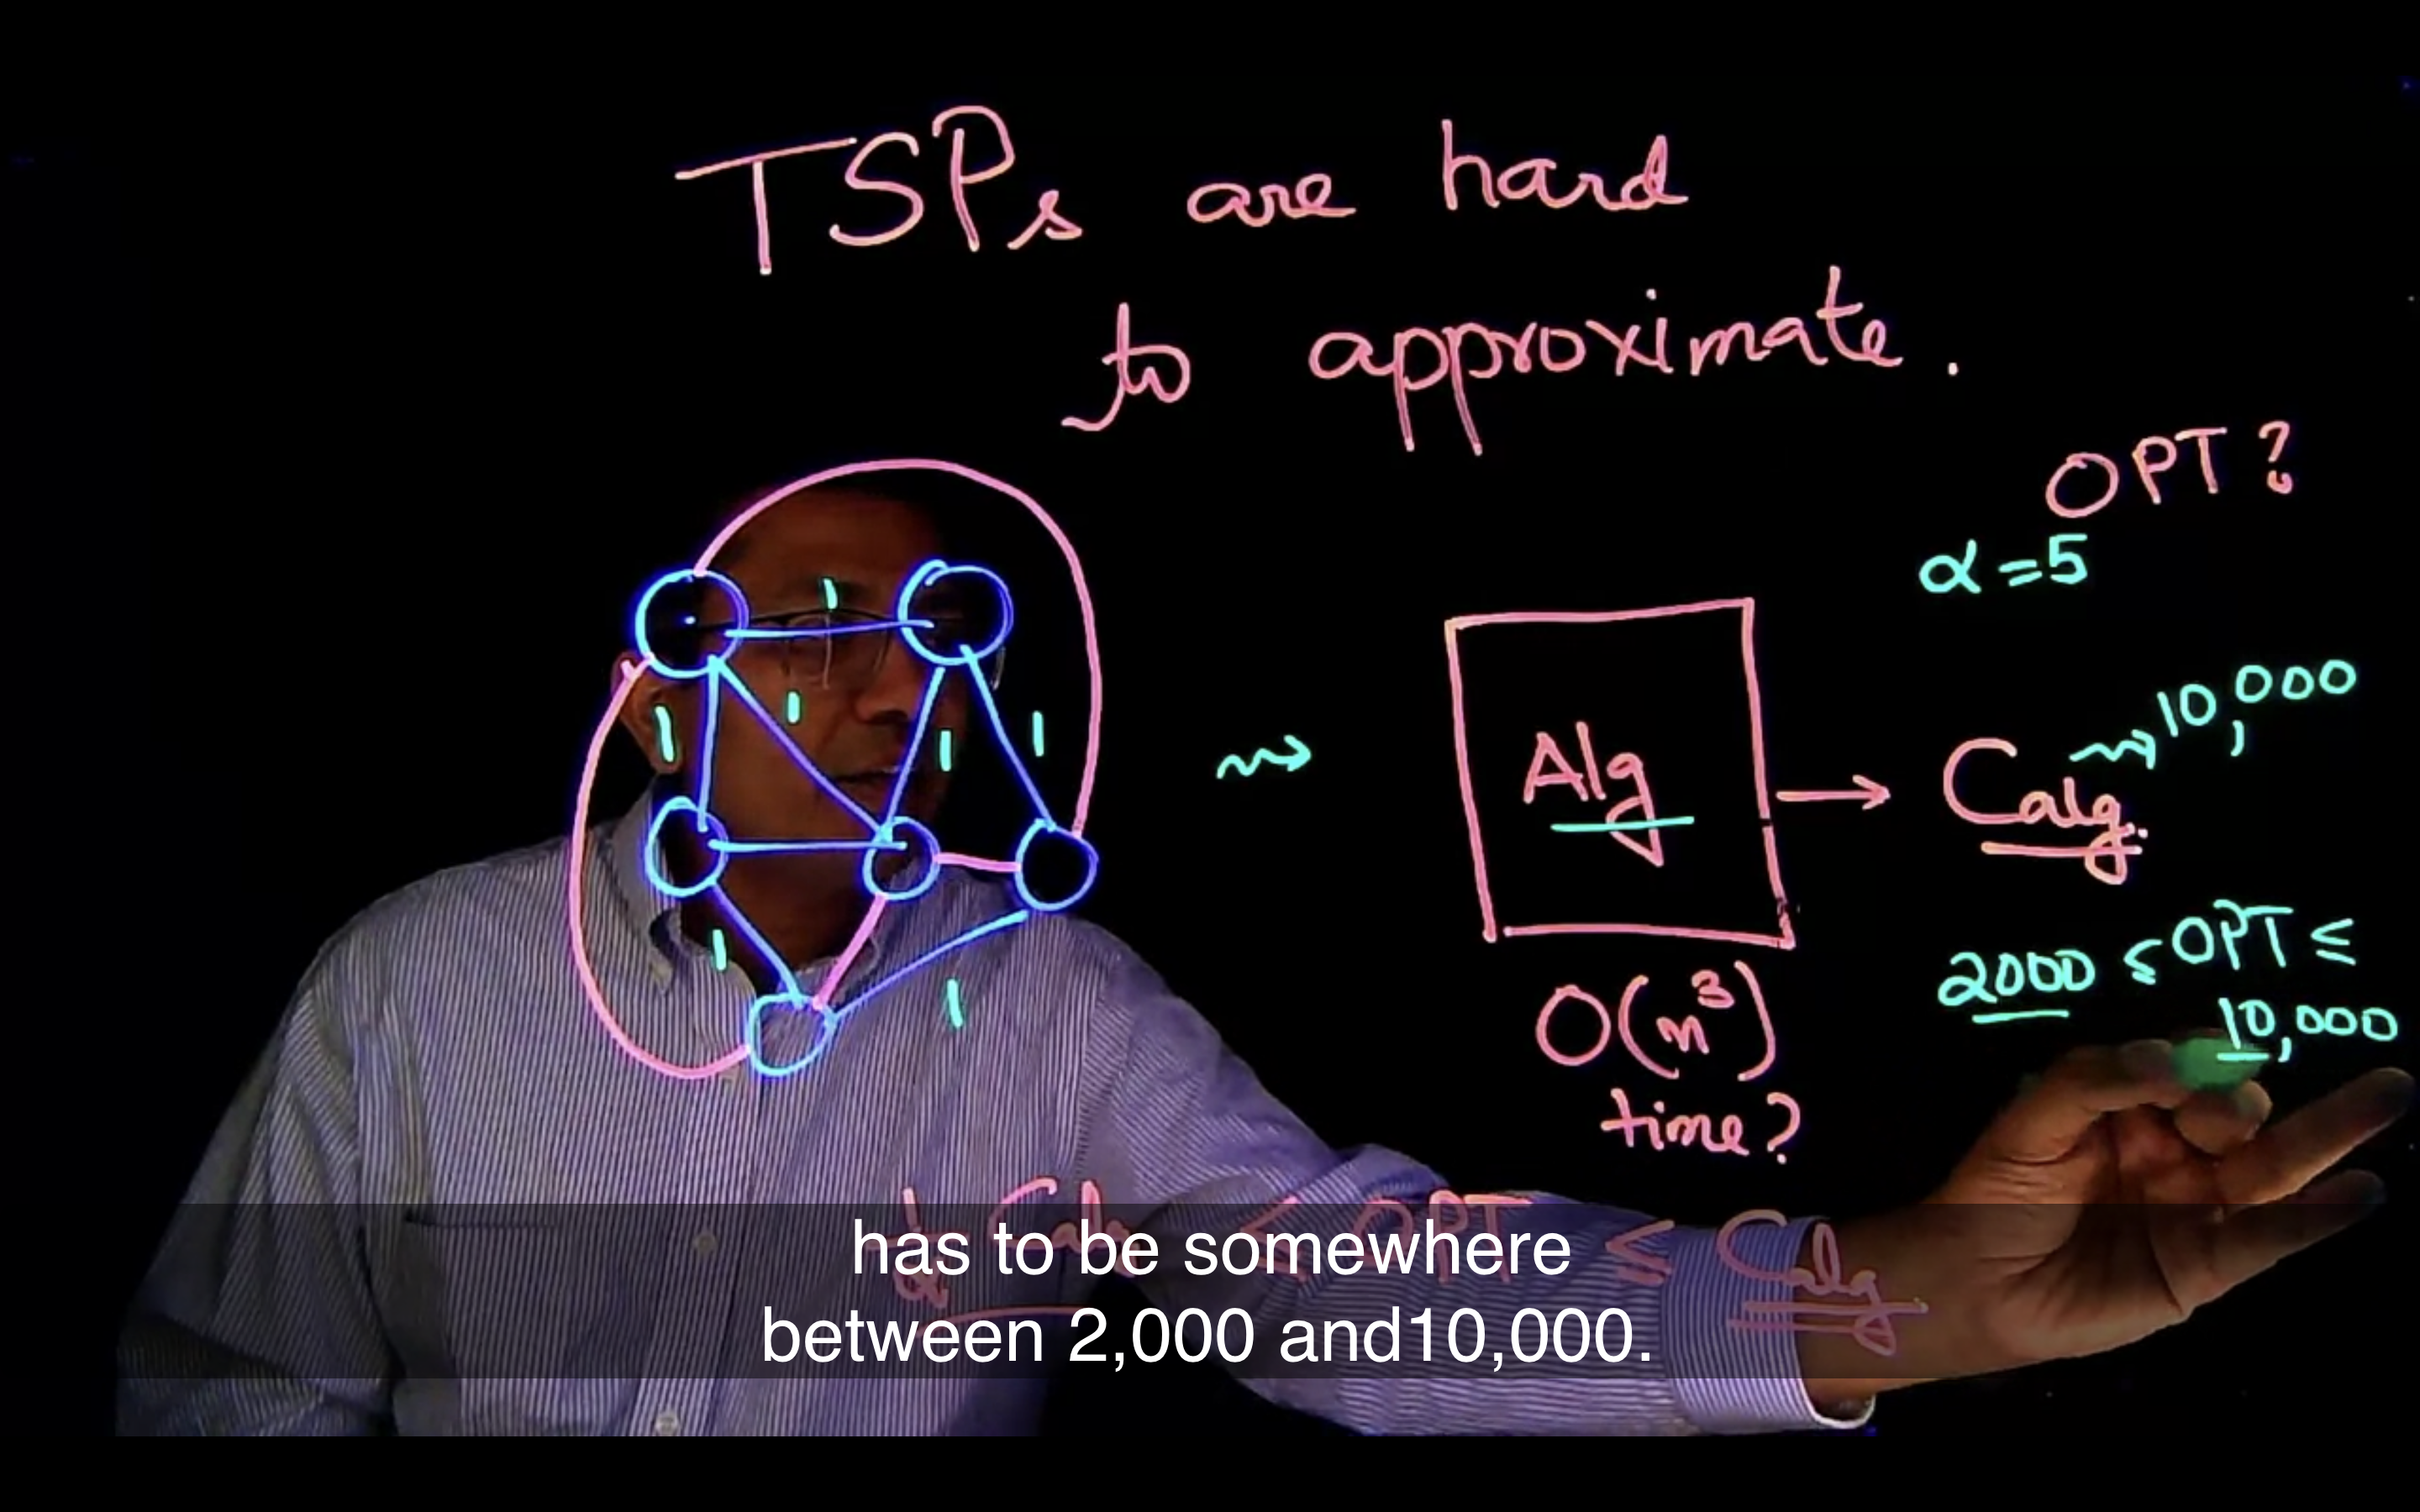 TSPs are hard
to approximate.
OPT?
α = 5
1
1
1
1
1
1
1
Alg
Calg
10,000
2000 ≤ OPT ≤
10,000
O(n³)
time?
1/α Calg ≤ OPT ≤ Calg
has to be somewhere
between 2,000 and10,000.